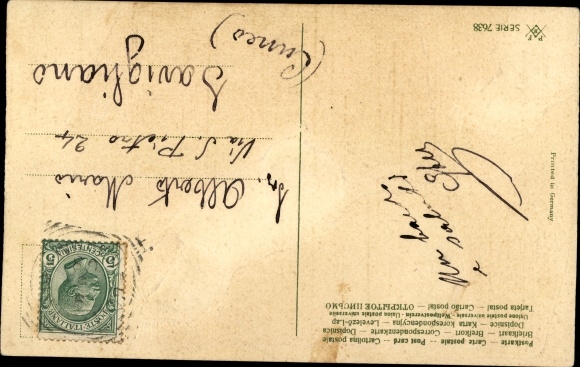 Postkarte — Carte postale — Post card — Cartolina postale
Briefkaart — Brefkort — Correspondenzkarte — Dopisnica
Dopisnice — Karta korespondencyjna — Levelező-Lap
Unione postale universale — Weltpostverein — Union postale universelle
Tarjeta postal — Cartão postal — ОТКРЫТОЕ ПИСЬМО
POSTE ITALIANE
5 CENTESIMI 5
Un bacio
e saluti
Printed in Germany
Sig. Alberto Mario
Via S. Pietro 24
Savigliano
(Cuneo)
SERIE 7638